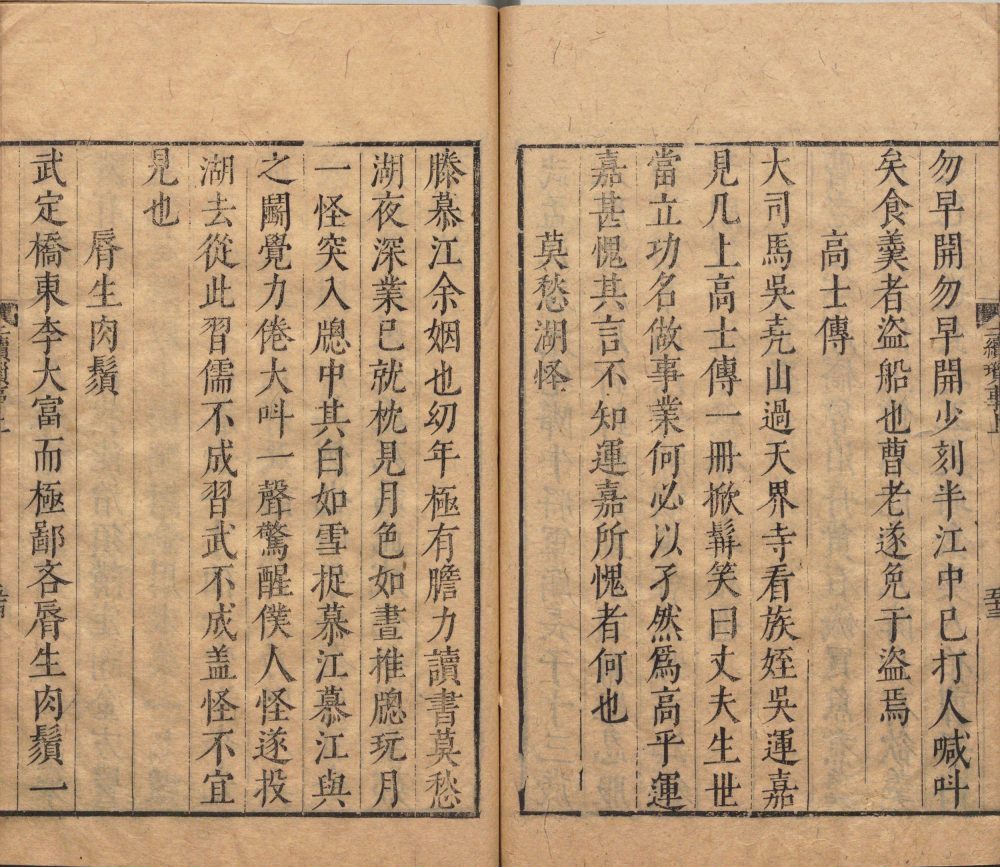 勿早開勿早開少刻半江中已打人喊呌
矣食羹者盜船也曹老遂免于盜焉
高士傳
大司馬吳尭山過天界寺看族姪吳運嘉
見几上高士傳一冊掀髯笑曰丈夫生世
當立功名做事業何必以孑然爲高乎運
嘉甚愧其言不知運嘉所愧者何也
莫愁湖怪
滕慕江余姻也幼年極有膽力讀書莫愁
湖夜深業已就枕見月色如晝推牕玩月
一怪突入牕中其白如雪捉慕江慕江與
之鬪覺力倦大呌一聲驚醒僕人怪遂投
湖去從此習儒不成習武不成盖怪不宜
見也
脣生肉鬚
武定橋東李大富而極鄙吝脣生肉鬚一